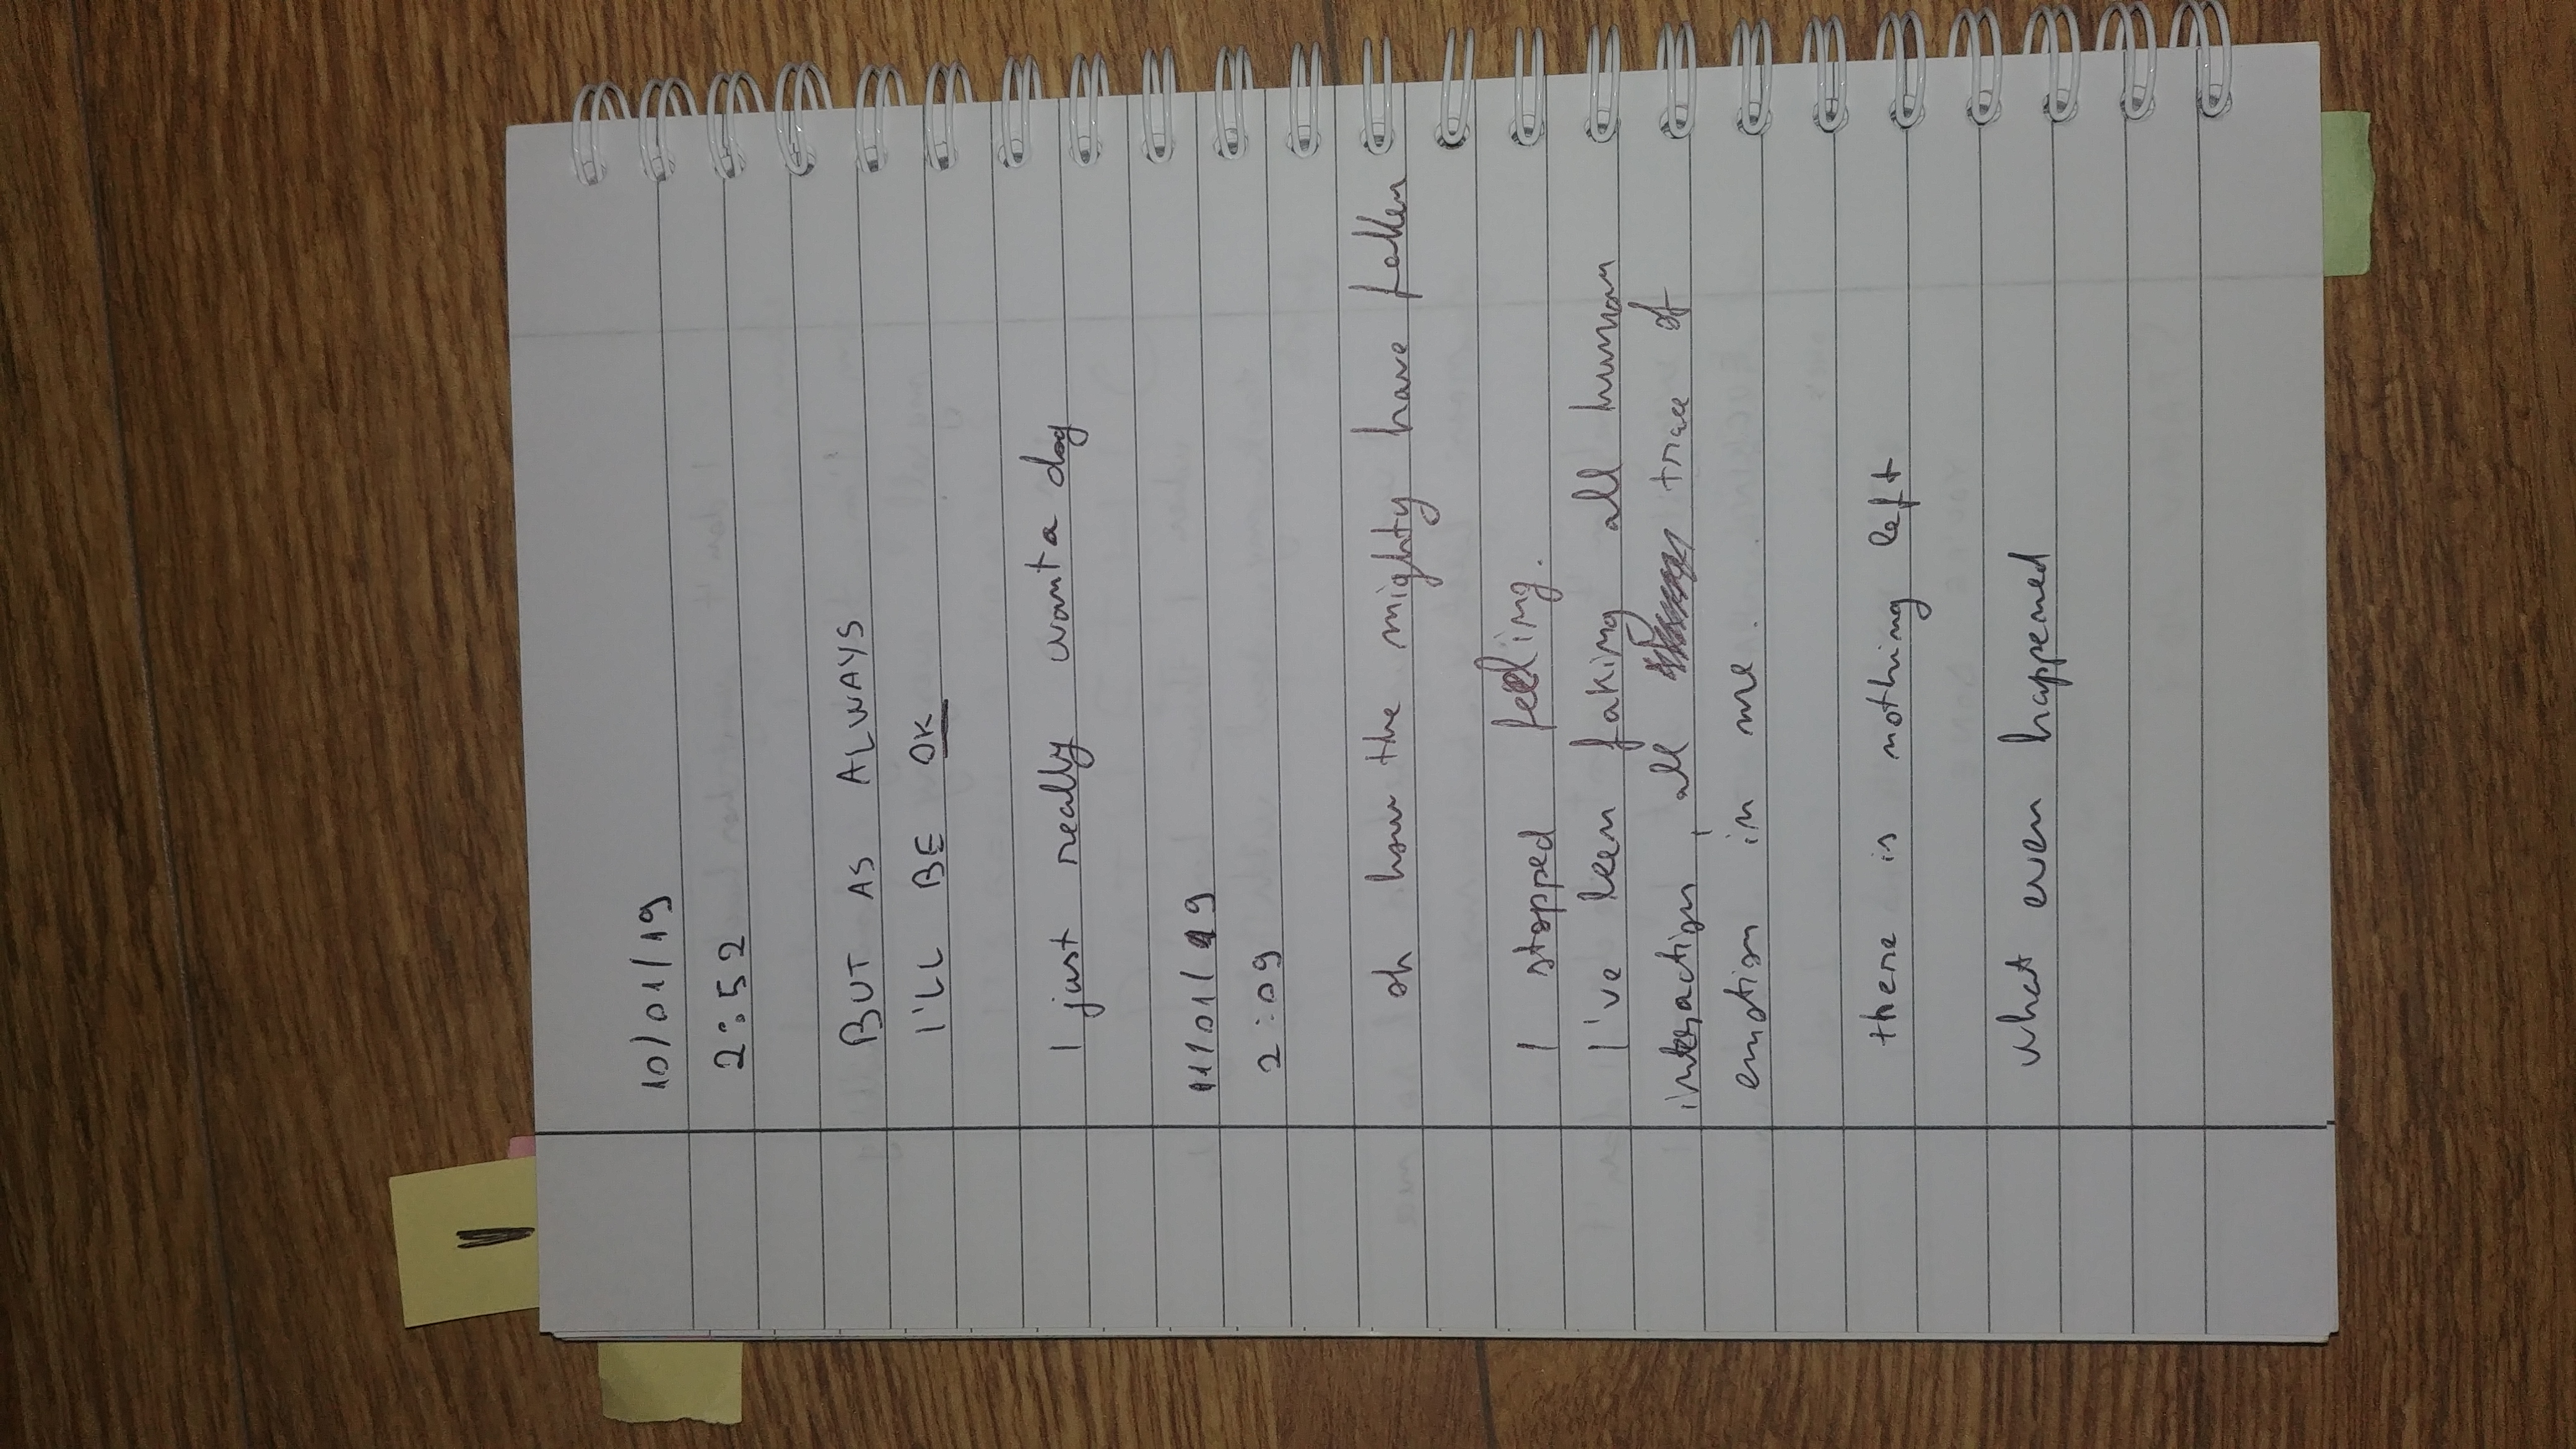 10/01/19
2:52
BUT AS ALWAYS
I'LL BE OK
I just really want a dog
11/01/19
2:09
oh how the mighty have fallen
I stopped feeling.
I've been faking all human
interaction, all trace of
emotion in me.
there is nothing left
what even happened